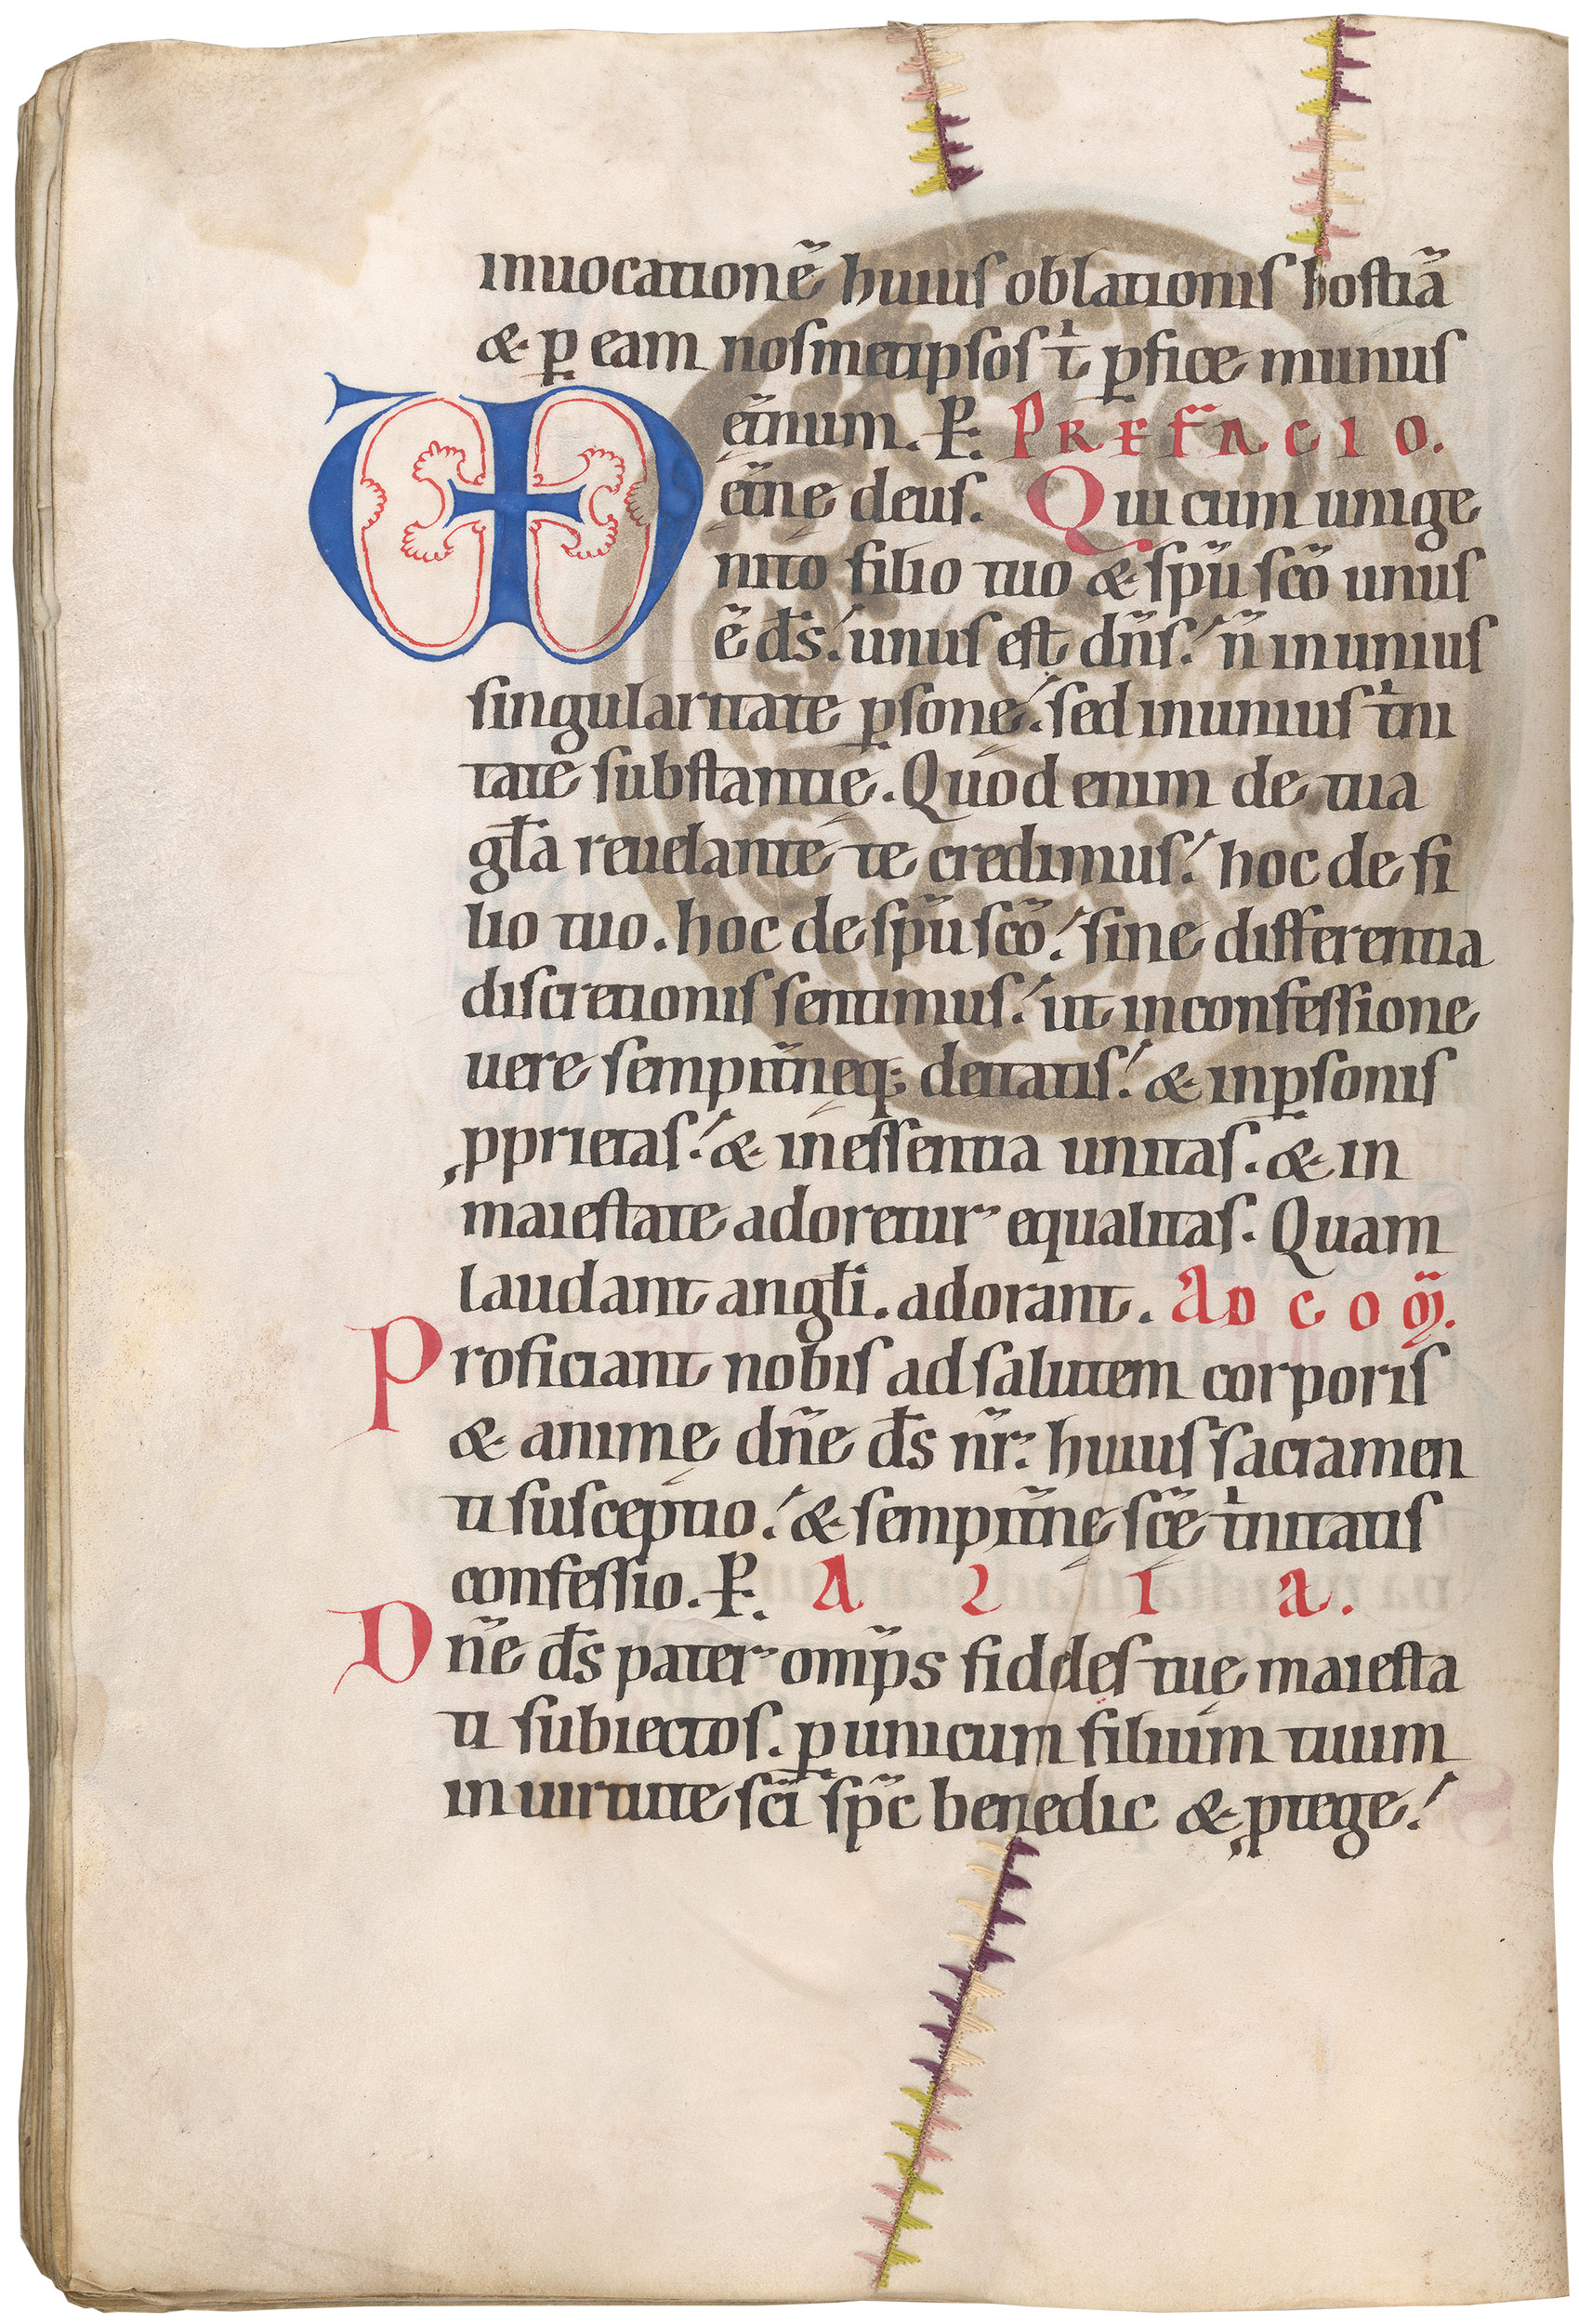 inuocationē huius oblationis hostiā
& p̲ eam nosmetipsos tⁱ p̲fice munus
et̄num. P̲. PREFACIO.
VD et̄nę deus. Qui cum unige
nito filio tuo & sp̄u sc̄o unus
ē d̄s. unus est dn̄s. n̄ in unius
singularitate p̲sonę. sed in unius tⁱni
tate substantię. Quod enim de tua
gl̄a reuelante te credimus. hoc de fi
lio tuo. hoc de sp̄u sc̄o. sine differentia
discretionis sentimus. ut in confessione
uere sempit̄nęq; deitatis. & in p̲sonis
ꝓprietas. & in essentia unitas. & in
maiestate adoretur equalitas. Quam
laudant angl̄i. adorant. AD COM̄.
Proficiant nobis ad salutem corporis
& animę dn̄e d̄s nr̄. huius sacramen
ti susceptio. & sempit̄nę sc̄ę tⁱnitatis
confessio. P̲. ALIA.
Dn̄e d̄s pater omp̄s fideles tuę maiesta
ti subiectos. p̲ unicum filium tuum
in uirtute sc̄i sp̄c benedic & ꝓtege.